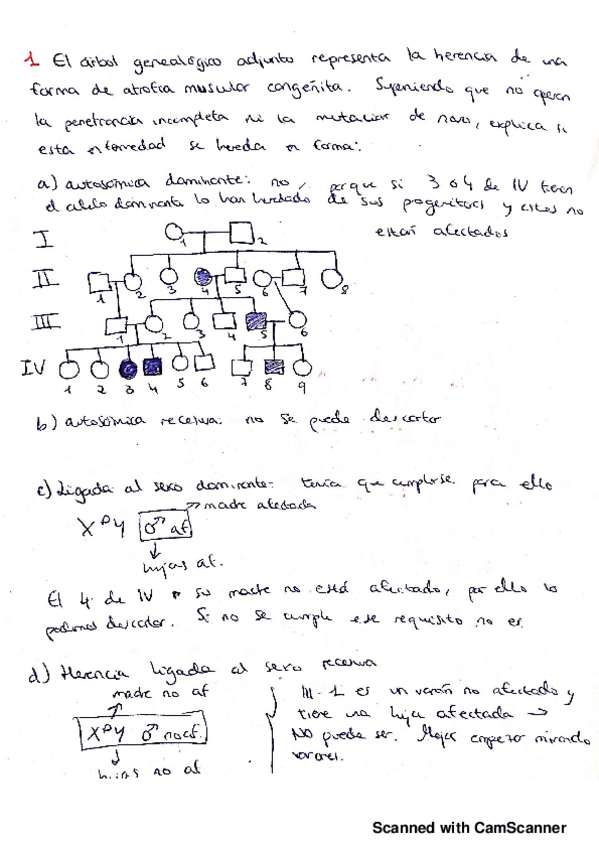 1 El árbol genealógico adjunto representa la herencia de una
forma de atrofia muscular congénita. Suponiendo que no operan
la penetrancia incompleta ni la mutación de novo, explica si
esta enfermedad se hereda en forma:
a) autosómica dominante: no, porque si 3 o 4 de IV tienen
el alelo dominante lo han heredado de sus progenitores y estos no
están afectados
I
1 2
II
1 2 3 4 5 6 7 8
III
1 2 3 4 5 6
IV
1 2 3 4 5 6 7 8 9
b) autosómica recesiva: no se puede descartar
c) Ligada al sexo dominante: tenía que cumplirse para ello
madre afectada
XᴰY ♂ af.
hijas af.
El 4 de IV su madre no está afectado, por ello lo
podemos descartar. Si no se cumple ese requisito no es.
d) Herencia ligada al sexo recesiva
madre no af
XᴰY ♂ no af.
hijas no af
III-1 es un varón no afectado y
tiene una hija afectada →
No puede ser. Mejor empezar mirando
varones.
Scanned with CamScanner